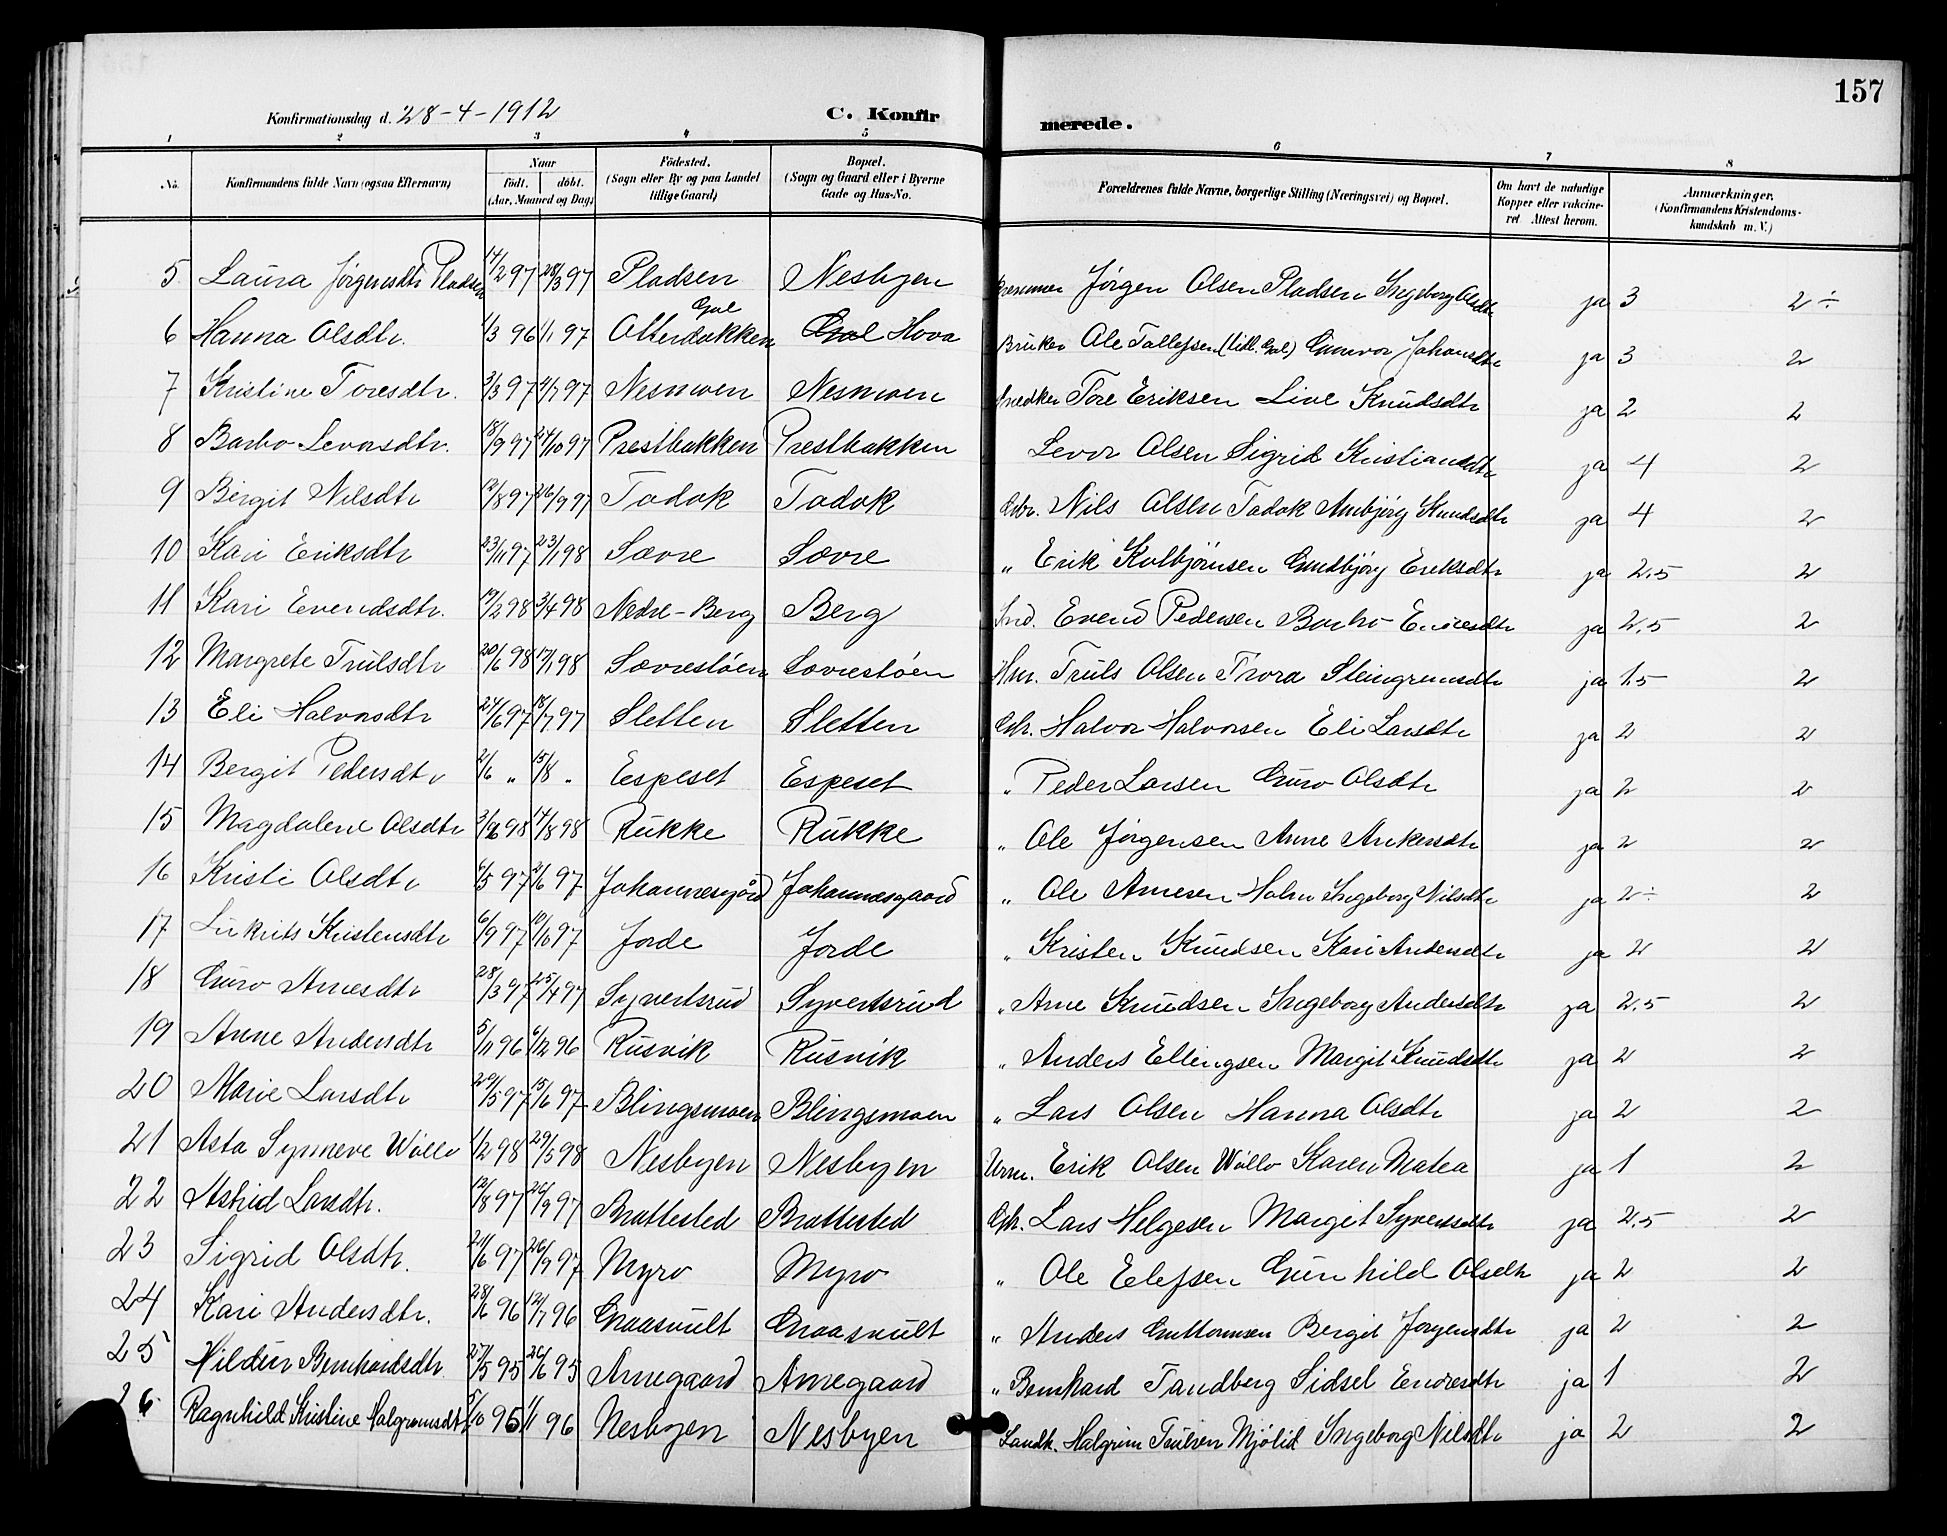 157
Konfirmationsdag d. 28-4-1912 C. Konfirmerede.
1 2 3 4 5 6 7 8
No. Konfirmandens fulde Navn (ogsaa Efternavn) Naar født. døbt. (Aar, Maaned og Dag) Fødested. (Sogn eller By og paa Landet tillige Gaard) Bopæl. (Sogn og Gaard eller i Byerne Gade og Hus-No. Forældrenes fulde Navne, borgerlige Stilling (Næringsvei) og Bopæl. Om havt de naturlige Kopper eller vakcineret Attest herom. Anmærkninger. (Konfirmandens Kristendomskundskab m. V.)
5 Laura Jørgensdtr Pladsen 14/2 97 28/3 97 Pladsen Nesbyen Jørgen Olsen Pladsen Ingeborg Olsdtr ja 3 2÷
6 Hanna Olsdtr. 1/3 96 1/1 97 Gol Hova Bruker Ole Tollefsen Gunvor Johansdtr ja 3 2
7 Kristine Toresdtr. 3/3 97 4/7 97 Nesmoen Nesmoen Snedker Tore Eriksen Live Knudsdtr ja 2 2
8 Barbo Levorsdtr. 18/9 97 24/10 97 Prestbakken Prestbakken Levor Olsen Sigrid Kristiansdtr ja 4 2
9 Birgit Nilsdtr 12/8 97 26/9 97 Todok Todok Nils Olsen Todok Anbjörg Knudsdtr ja 4 2
10 Kari Eriksdtr 23/11 97 23/1 98 Sævre Sævre " Erik Kolbjörnsen Gundbjörg Eriksdtr ja 2,5 2
11 Kari Evendsdtr. 19/2 98 3/4 98 Nedre-Berg Berg Ind. Evend Pedersen Barbo Endresdtr ja 2,5 2
12 Margrete Trulsdtr 20/6 98 17/1 98 Sævrestøen Sævrestøen Hm. Truls Olsen Thora Steingrimsdtr ja 1.5 2
13 Eli Halvorsdtr 24/6 97 18/7 97 Sletten Sletten Gbr. Halvor Halvorsen Eli Larsdtr ja 2 2
14 Bergit Pedersdtr 2/6 " 15/8 " Espeset Espeset " Peder Larsen Guro Olsdtr ja 2 2
15 Magdalene Olsdtr 98 14/8 98 Rukke Rukke " Ole Jørgensen Anne Ankersdtr ja 2 2
16 Kristi Olsdtr 6/5 97 2/6 97 Johannesgård Johannesgaard " Ole Arnesen Holm Ingeborg Nilsdtr ja 2÷ 2
17 Kristensdtr 6/9 97 10/10 97 Jorde Jorde " Kristen Knudsen Kari Andersdtr ja 2 2
18 Guro Arnesdtr 28/3 97 25/4 97 Syvertsrud Syvertsrud " Arne Knudsen Ingeborg Andersdtr ja 2,5 2
19 Anne Andersdtr 5/11 96 6/12 96 Rusvik Rusvik " Anders Ellingsen Margit Knudsdtr ja 2 2
20 Marie Larsdtr 29/5 97 15/6 97 Blingsmoen Blingsmoen " Lars Olsen Hanna Olsdtr ja 2 2
21 Asta Synneve Wøllo 1/2 98 29/5 98 Nesbyen Nesbyen Urm. Erik Olsen Wøllo Karen Matea ja 1 2
22 Astrid Larsdtr. 12/8 97 26/9 97 Brattested Brattested Gbr. Lars Helgesen Margit Syvertsdtr ja 2,5 2
23 Sigrid Olsdtr. 24/6 97 26/9 97 Myro Myro " Ole Elefsen Gunhild Olsdtr ja 2 2
24 Kari Andersdtr. 28/6 96 12/7 96 Graasvult Graasvult " Anders Guttormsen Bergit Jorgensdtr ja 2 2
25 Hildur Bernhardsdtr 27/5 95 26/6 95 Arnegaard Arnegaard " Bernhard Tandberg Sidsel Endresdtr ja 1 2
26 Ragnhild Kristine Halgrimsdtr 5/10 95 1/1 96 Nesbyen Nesbyen Landh. Halgrim Trulsen Mjølid Ingeborg Nilsdtr ja 2 2